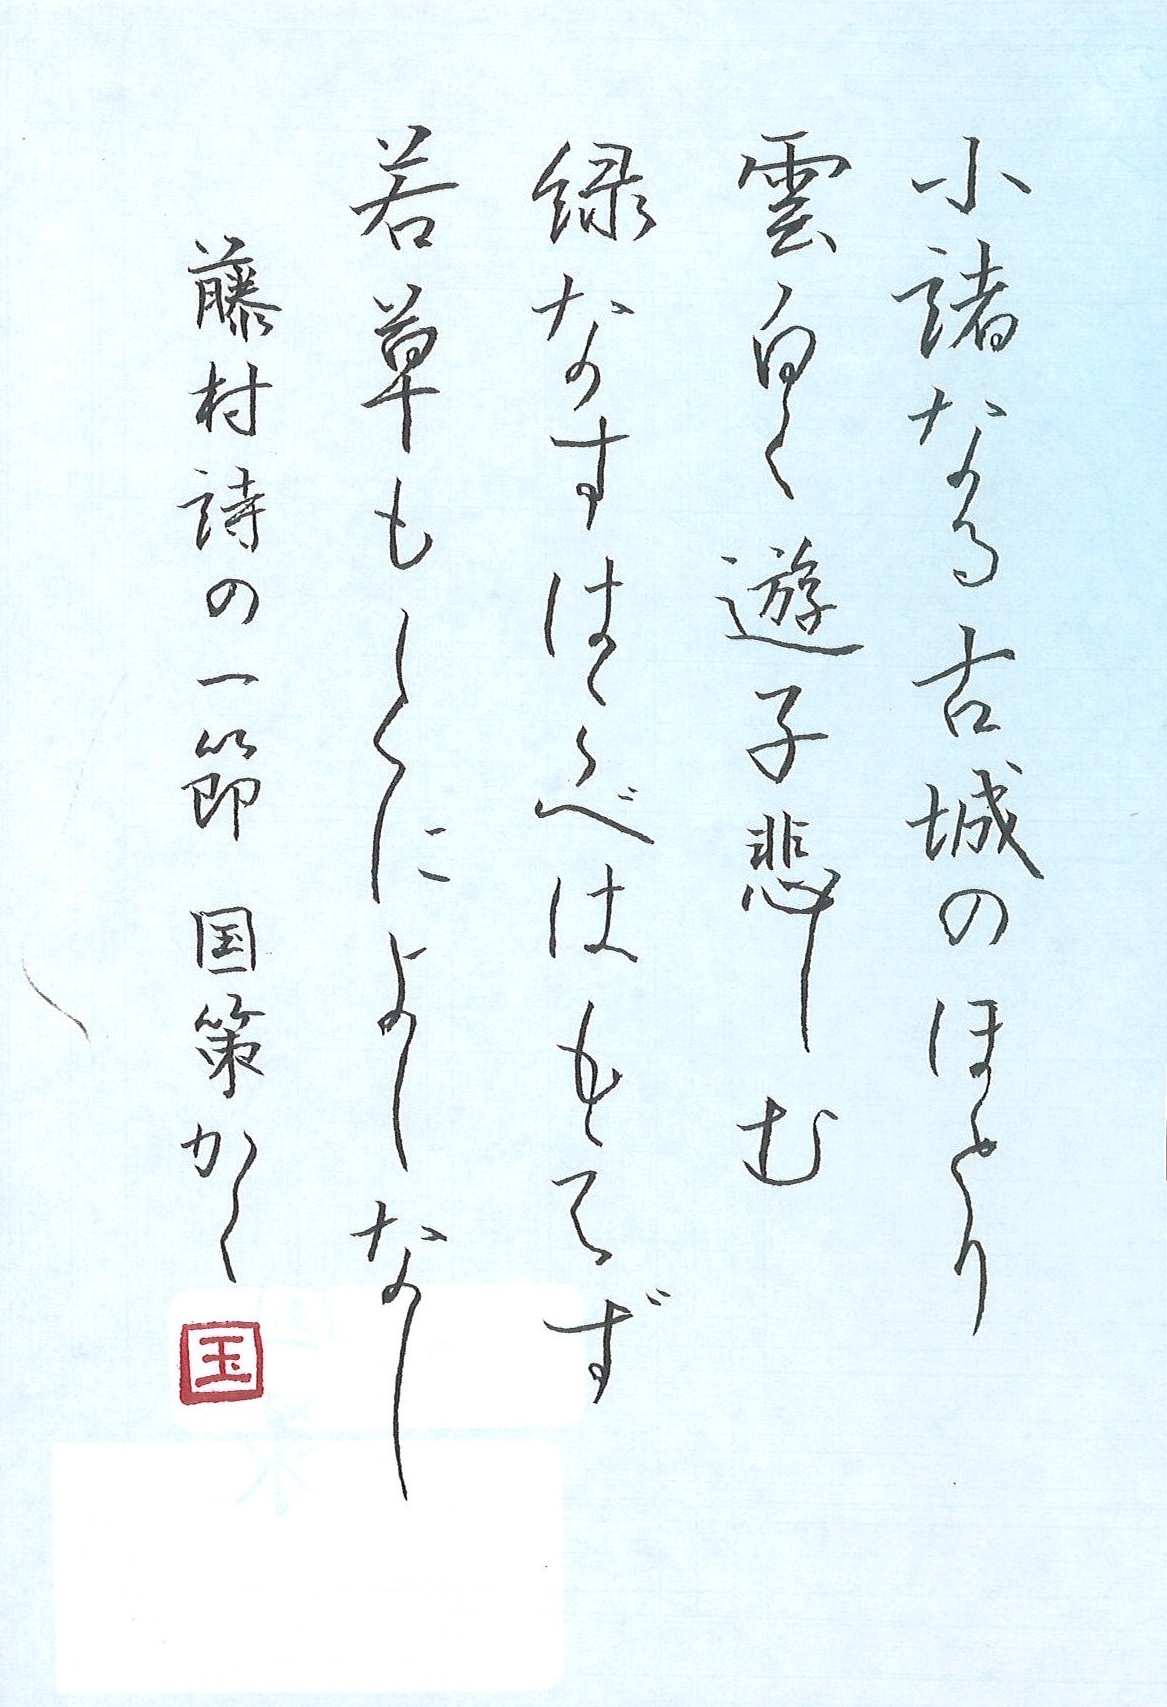 小諸なる古城のほとり
雲白く遊子悲しむ
緑なすはくべはもえず
若草もしくによしなし
藤村詩の一節 国策かく
玉